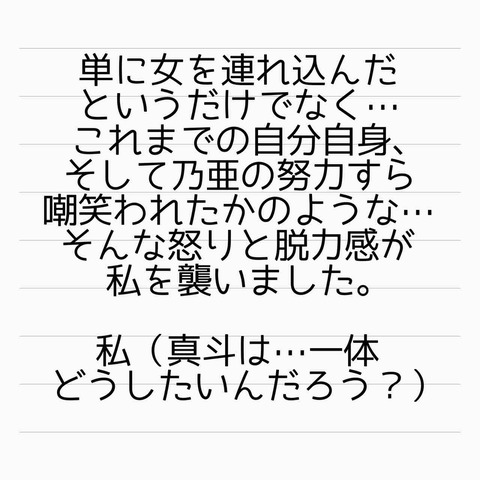 単に女を連れ込んだ
というだけでなく…
これまでの自分自身、
そして乃亜の努力すら
嘲笑われたかのような…
そんな怒りと脱力感が
私を襲いました。
私（真斗は…一体
どうしたいんだろう？）